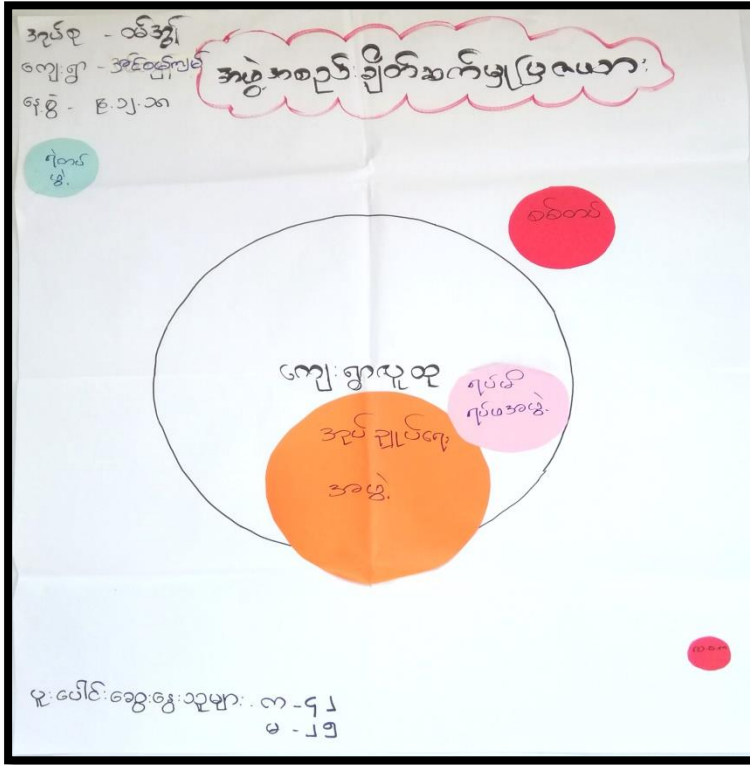 အုပ်စု - ထမ်အွန်
ကျေးရွာ -
နေ့စွဲ - ၉.၁၂.၁၈
အဖွဲ့အစည်းချိတ်ဆက်မှုပြဇယား
ရဲတပ်
ဖွဲ့
စစ်တပ်
ကျေးရွာလူထု
ရပ်မိ
ရပ်ဖအဖွဲ့
အုပ်ချုပ်ရေး
အဖွဲ့
ပူးပေါင်းဆွေးနွေးသူများ - ကျ - ၄၂
မ - ၂၅